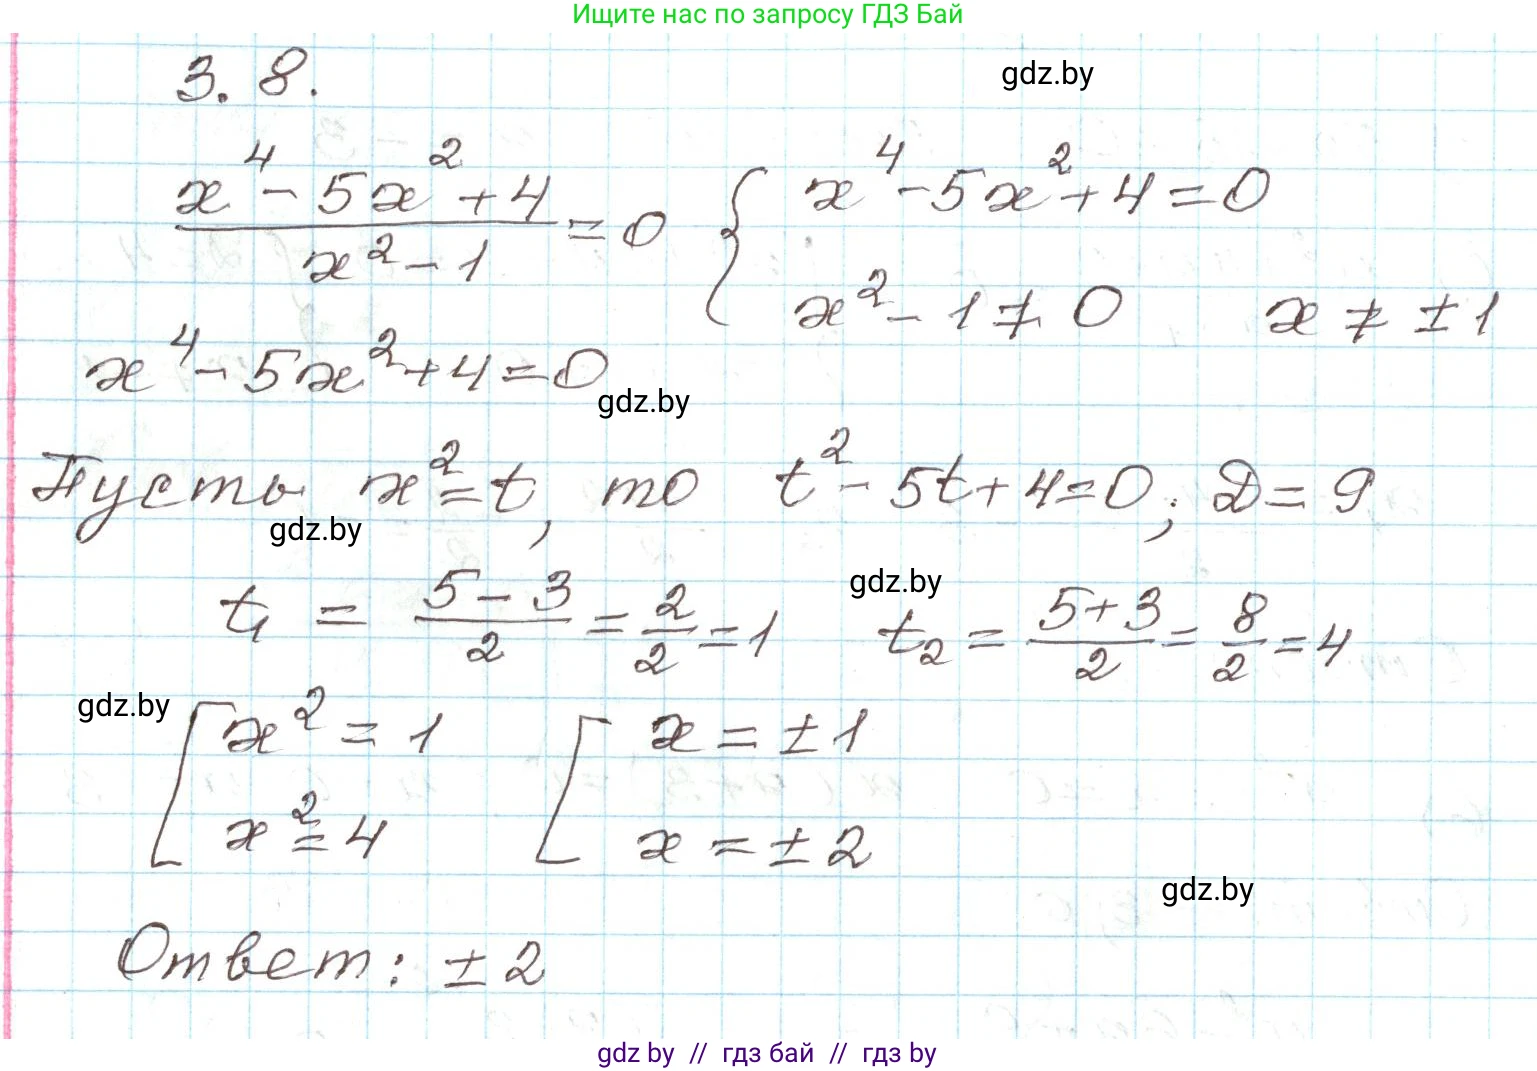 Ищите нас по запросу ГДЗ Бай
3.8.
gdz.by
(x⁴ - 5x² + 4)/(x² - 1) = 0 { x⁴ - 5x² + 4 = 0
x² - 1 ≠ 0 x ≠ ±1
x⁴ - 5x² + 4 = 0
gdz.by
Пусть x² = t, то t² - 5t + 4 = 0; Д = 9
gdz.by
t₁ = (5 - 3)/2 = 2/2 = 1 gdz.by t₂ = (5 + 3)/2 = 8/2 = 4
gdz.by
[ x² = 1 [ x = ±1
x² = 4 x = ±2
gdz.by
Ответ: ±2
gdz by // гдз бай // гдз by